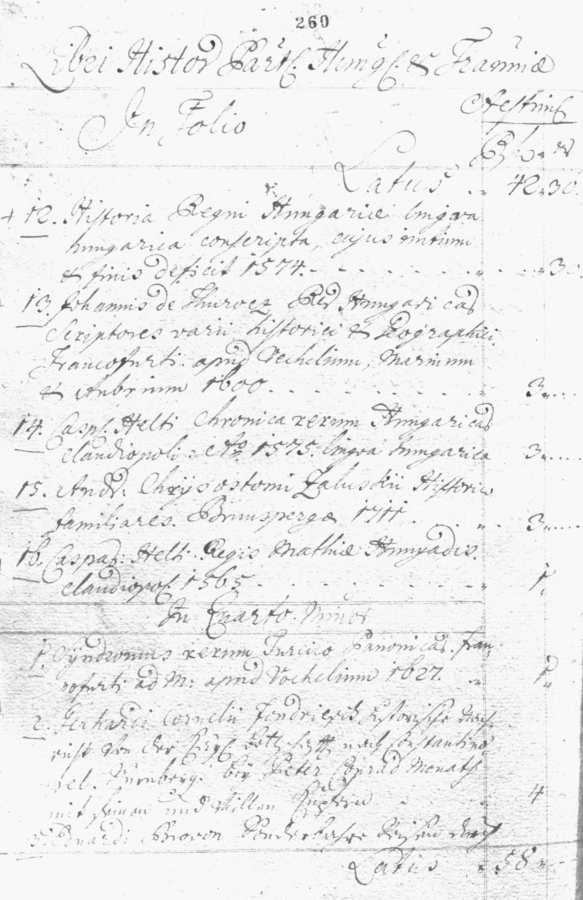 260
Libri Histor Part. Hung. & Tranniæ
In Folio
Æstim
Latus 42.30
12. Historia Regni Hungariæ lingva
hungarica conscripta, cujus initium
& finis deficit 1574.
13. Johannis de Thurocz Rer Hungaricar
Scriptores varii historici & Geographici
Francofurti. apud Vechelium, Marnium
& Aubrium 1600. 3
14. Casp. Helti Chronica rerum Hungaricar
Claudiopoli Ao 1575. lingva hungarica 3
15. Andr. Chrysostomi Zaluskii Historico
familiares. Brunspergæ 1711. 3
16. Caspar. Helti Regis Mathiæ Hunyadis.
Claudiopol 1565 1
In Quarto. Minor
1. Syndromus rerum Turcico Panonicar. Fran
cofurti ad M: apud Vechelium 1627. 1
2. Gerhardi Cornelii Historische
von der nach Constantino
pel. Nürnberg. bey Peter Conrad Monath
mit und Kupfern 4
3. Eduardi Brovon Sonderbahre Reisen durch
Latus 58